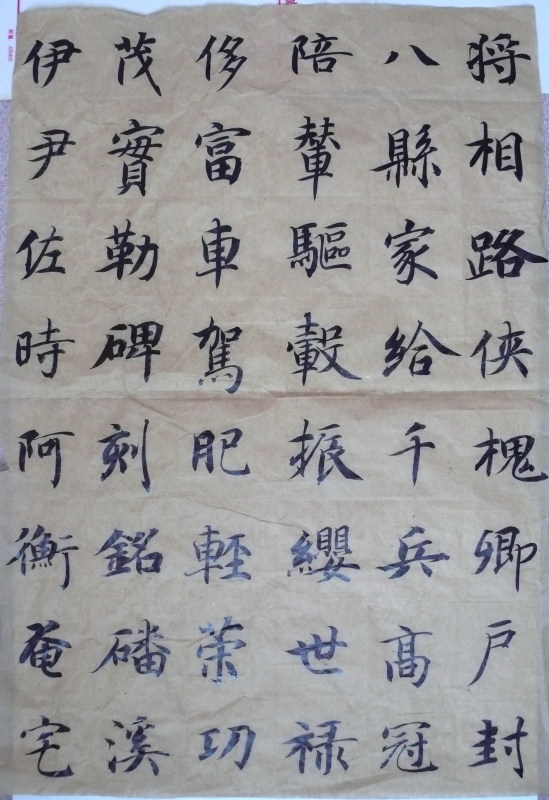 将相路侠槐卿戶封
八縣家給千兵高冠
陪輦驅轂振纓世禄
侈富車駕肥輕策功
茂實勒碑刻銘磻溪
伊尹佐時阿衡奄宅